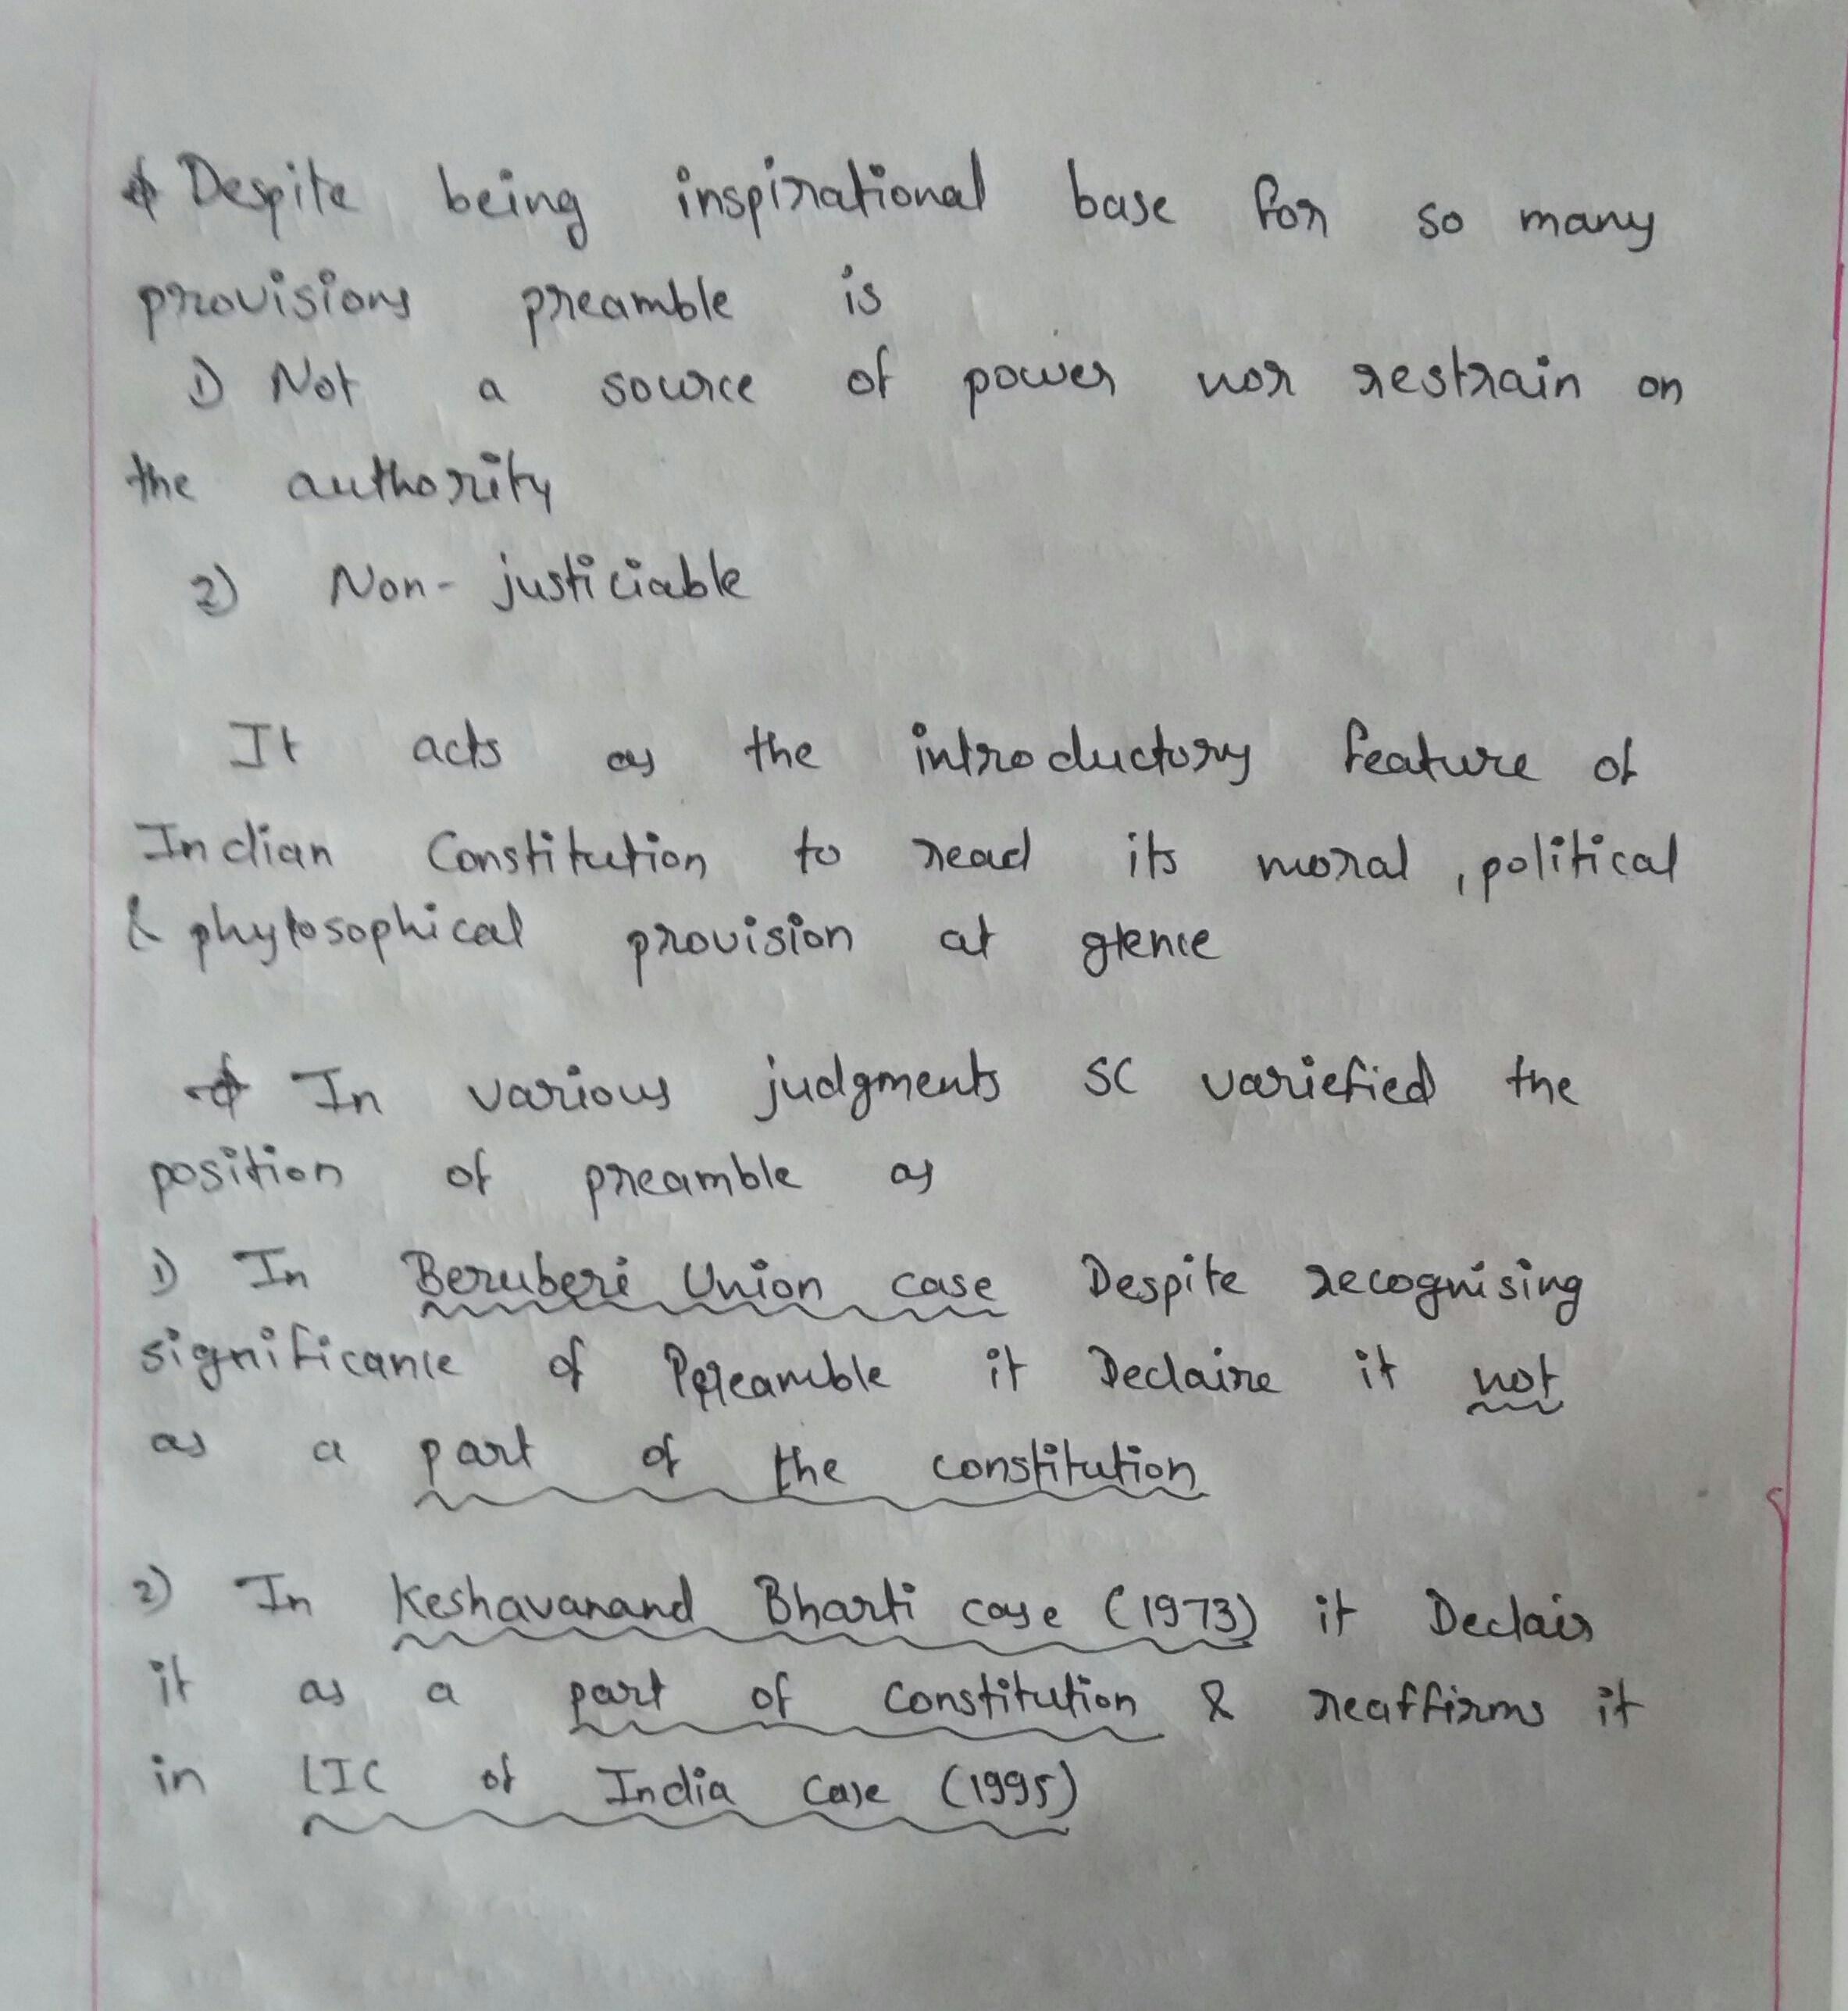 Despite being inspirational base for so many
provisions preamble is
1) Not a source of power nor restrain on
the authority
2) Non-justiciable
It acts as the introductory feature of
Indian Constitution to read its moral, political
& phylosophical provision at glence
In various judgments SC variefied the
position of preamble as
1) In Beruberi Union case Despite recognising
significance of Preamble it Declaire it not
as a part of the constitution
2) In Keshavanand Bharti case (1973) it Declair
it as a part of constitution & reaffirms it
in LIC of India Case (1995)